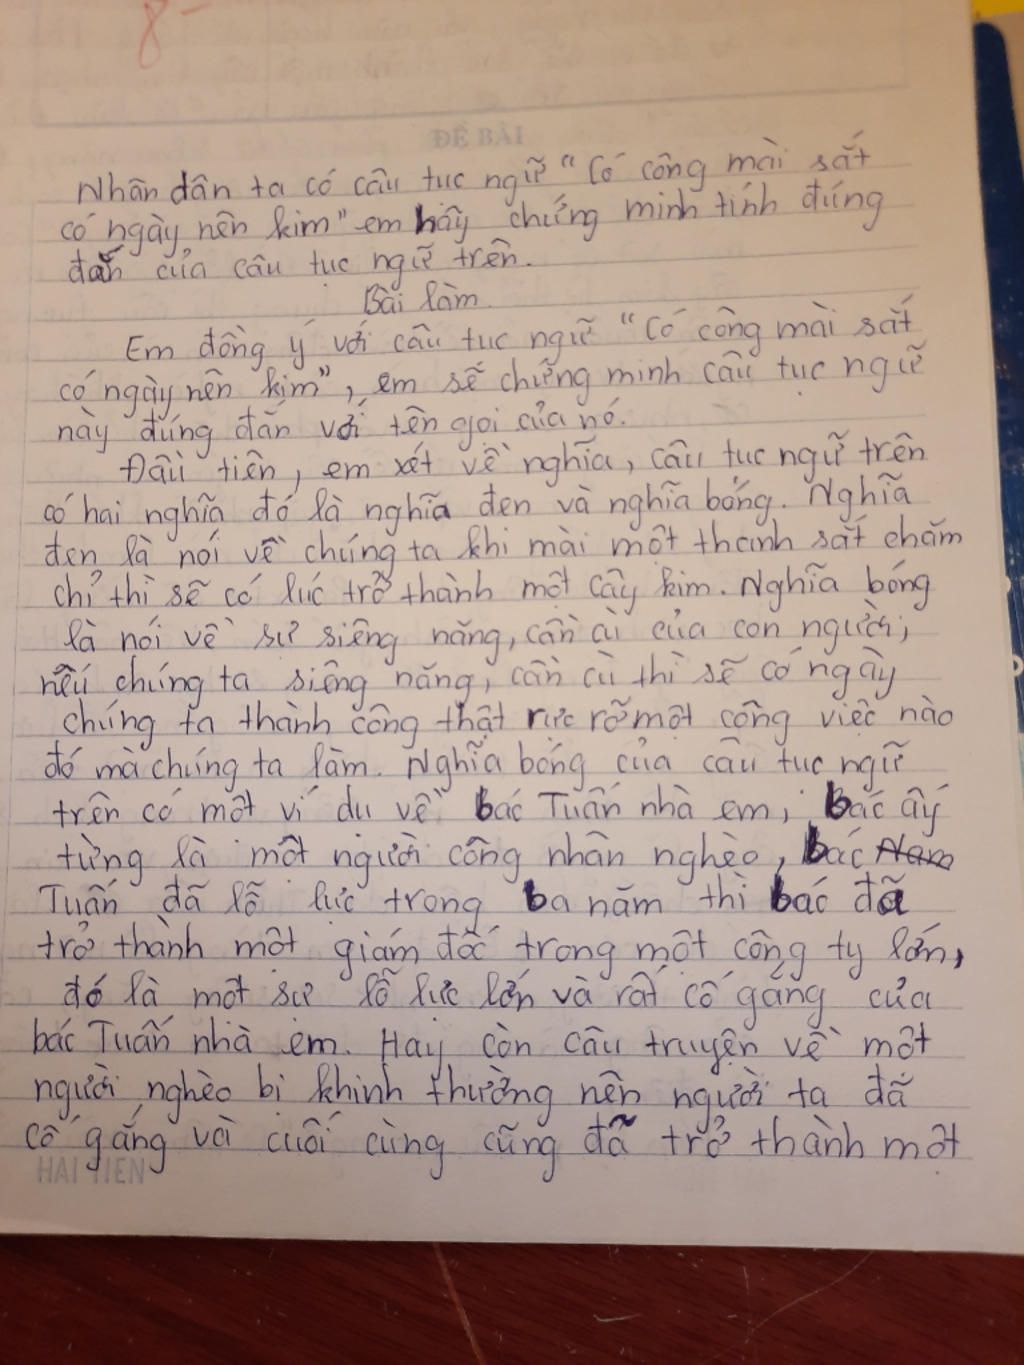 8-
ĐỀ BÀI
Nhân dân ta có câu tục ngữ "Có công mài sắt
có ngày nên kim" em hãy chứng minh tính đúng
đắn của câu tục ngữ trên.
Bài làm
Em đồng ý với câu tục ngữ "Có công mài sắt
có ngày nên kim", em sẽ chứng minh câu tục ngữ
này đúng đắn với tên gọi của nó.
Đầu tiên, em xét về nghĩa, câu tục ngữ trên
có hai nghĩa đó là nghĩa đen và nghĩa bóng. Nghĩa
đen là nói về chúng ta khi mài một thanh sắt chăm
chỉ thì sẽ có lúc trở thành một cây kim. Nghĩa bóng
là nói về sự siêng năng, cần cù của con người,
nếu chúng ta siêng năng, cần cù thì sẽ có ngày
chúng ta thành công thật rực rỡ một công việc nào
đó mà chúng ta làm. Nghĩa bóng của câu tục ngữ
trên có một ví dụ về bác Tuấn nhà em, bác ấy
từng là một người công nhân nghèo, bác Nam
Tuấn đã lỗ lực trong ba năm thì bác đã
trở thành một giám đốc trong một công ty lớn,
đó là một sự lỗ lực lớn và rất cố gắng của
bác Tuấn nhà em. Hay còn câu truyện về một
người nghèo bị khinh thường nên người ta đã
cố gắng và cuối cùng cũng đã trở thành một
HẢI TIẾN